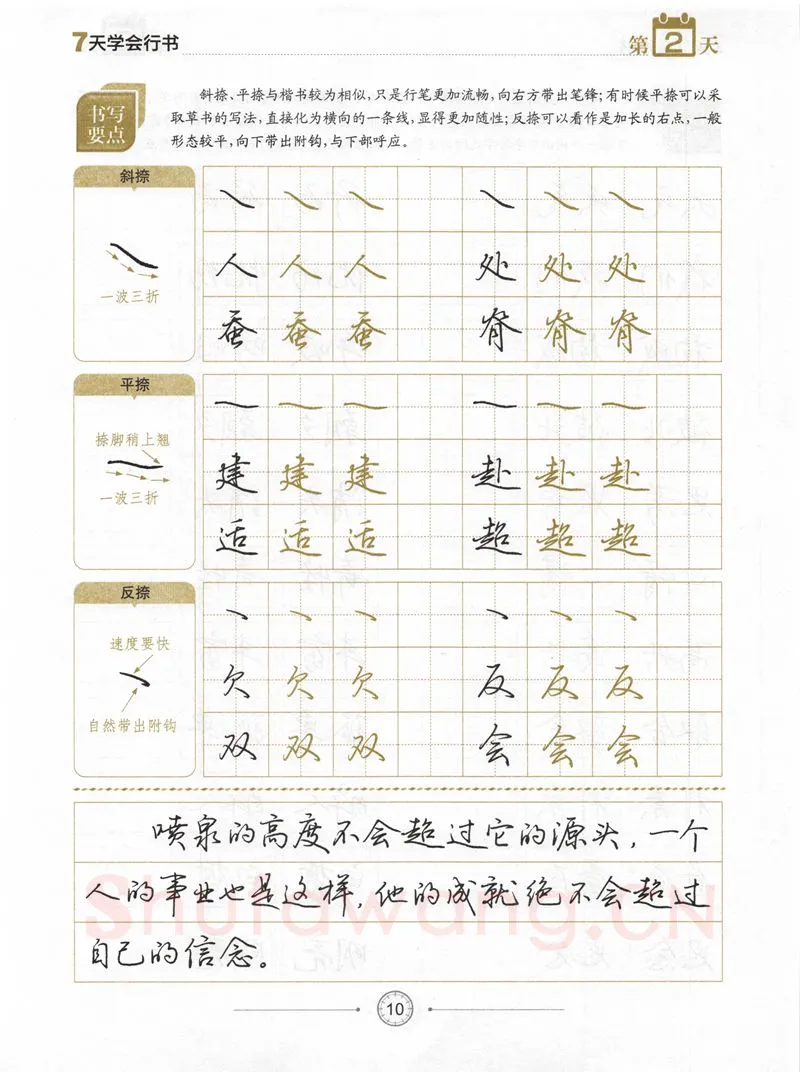 7天学会行书
第2天
书写要点
斜捺、平捺与楷书较为相似,只是行笔更加流畅,向右方带出笔锋;有时候平捺可以采
取草书的写法,直接化为横向的一条线,显得更加随性;反捺可以看作是加长的右点,一般
形态较平,向下带出附钩,与下部呼应。
斜捺
一波三折
人人人 处处处
蚕蚕蚕 脊脊脊
平捺
捺脚稍上翘
一波三折
建建建 赴赴赴
适适适 超超超
反捺
速度要快
自然带出附钩
欠欠欠 反反反
双双双 会会会
喷泉的高度不会超过它的源头,一个
人的事业也是这样,他的成就绝不会超过
自己的信念。
Shufawang.CN
10